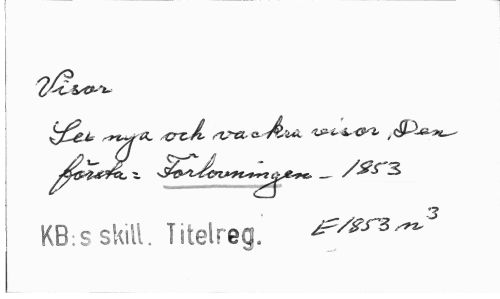 Visor
Sex nya och vackra visor, Den
första: Förlovningen – 1853
KB:s skill. Titelreg.
E 1853 n³